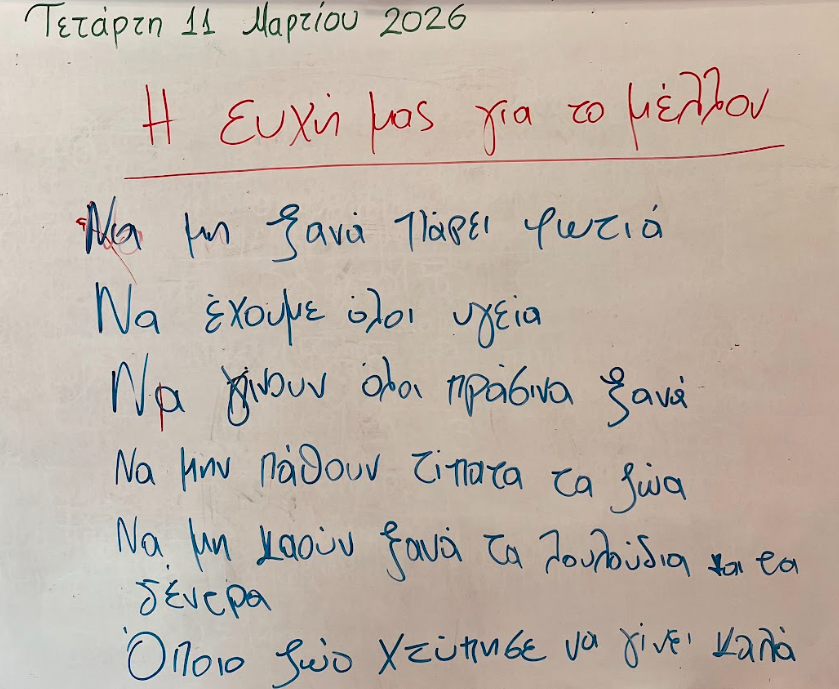 Τετάρτη 11 Μαρτίου 2026
Η ευχή μας για το μέλλον
Να μη ξανά πάρει φωτιά
Να έχουμε όλοι υγεία
Να γίνουν όλοι πράσινα ξανά
Να μην πάθουν τίποτα τα ζώα
Να μη καούν ξανά τα λουλούδια και τα
δέντρα
Όποιο ζώο χτύπησε να γίνει καλά